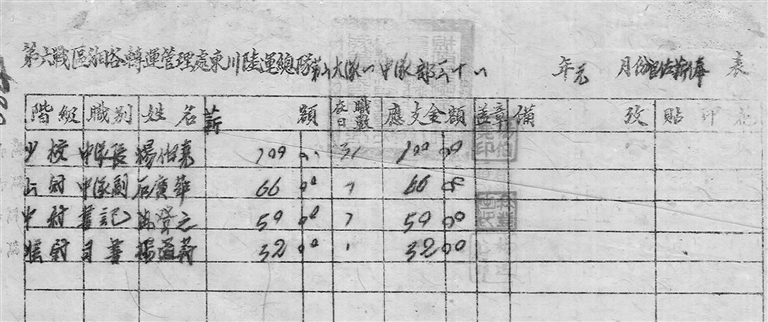 第六戰區湘谷轉運管理處東川陸運總隊第六大隊一中隊部三十一年元月份官佐薪俸表
階級 職別 姓名 薪額 在職日數 應支金額 蓋章 備攷 貼印花
少校 中隊長 楊伯 100 00 31 100 00
中隊副 石廣華 66 00 66 00
中尉 書記 59 00 59 00
准尉 司書 楊道 32 00 32 00